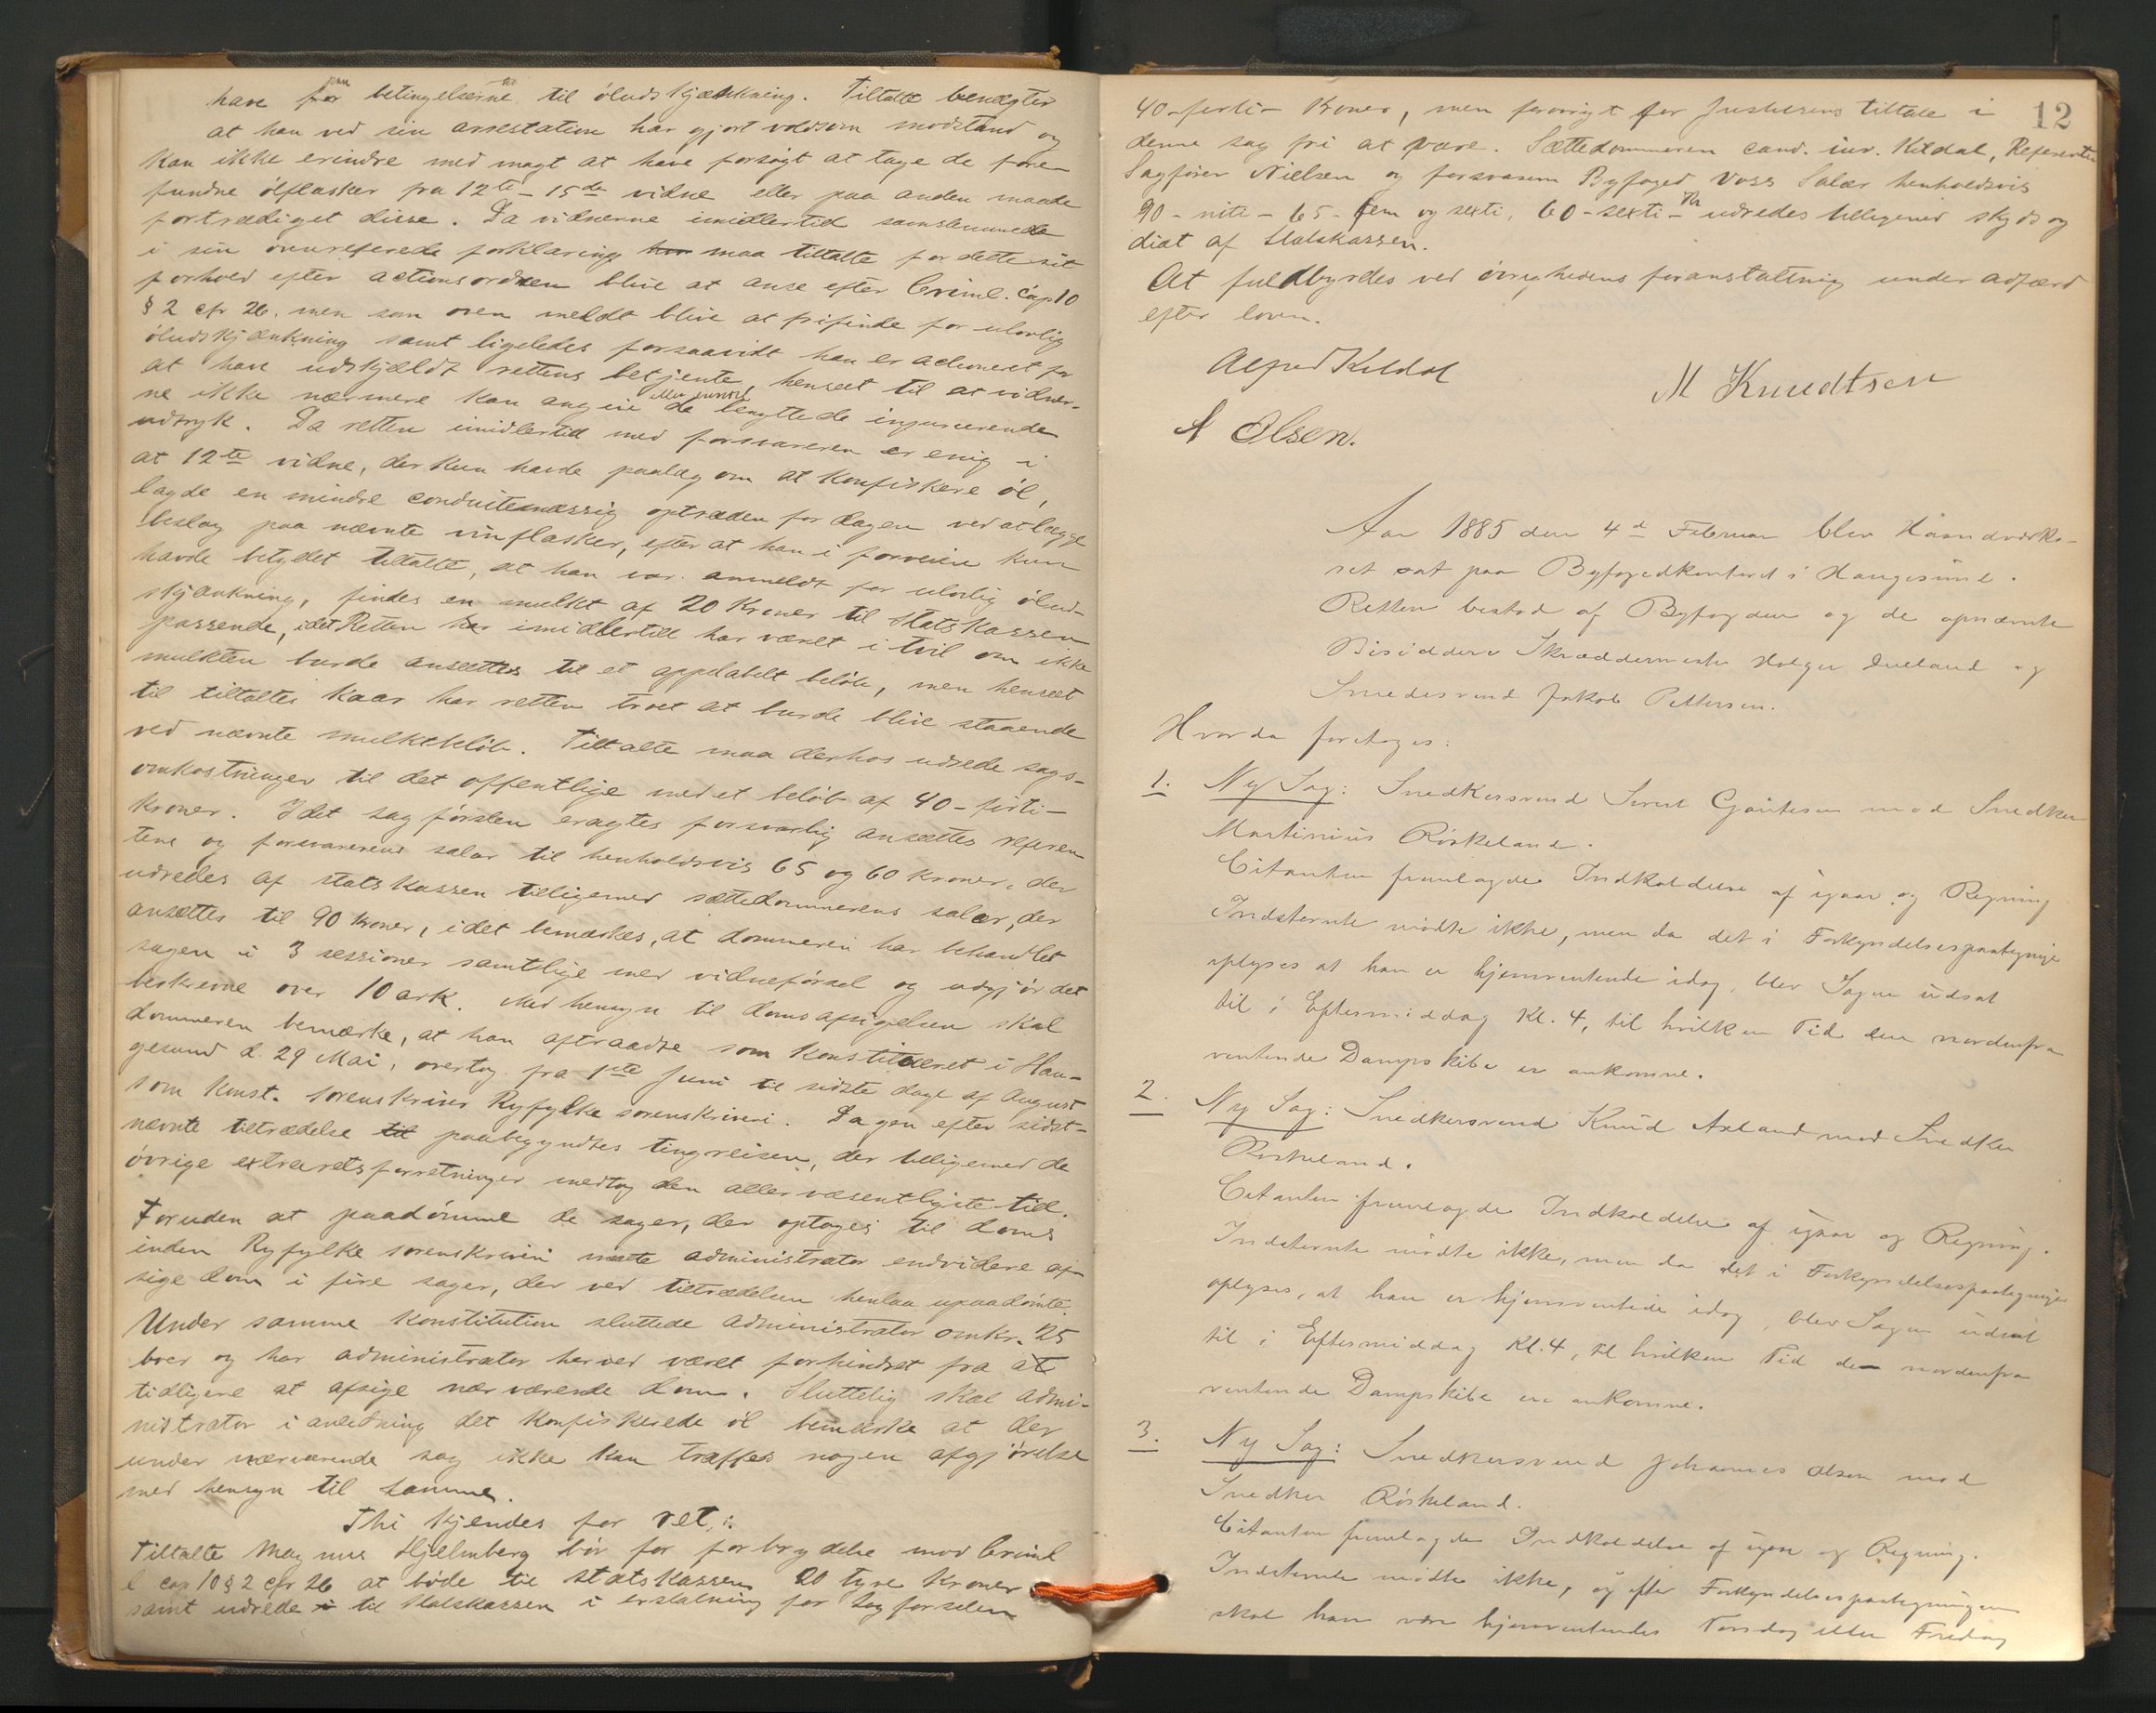 have for betingelserne til öludskjænkning. Tiltalte benægter
at han ved sin arrestation har gjort voldsom modstand og
kan ikke erindre med magt at have forsögt at tage de fore-
fundne ölflasker fra 12te - 15de vidne eller paa anden maade
fortrædiget disse. Da vidnerne imidlertid samstemmede
i sin ovenrefererede forklaring maa tiltalte for dette sit
forhold efter actionsordren blive at anse efter Criml. Cap 10
§ 2 cfr 26. men som oven meldt blive at frifinde for ulovlig
öludskjænkning samt ligeledes forsaavidt han er actioneret for
at have udskjældt rettens betjente, henseet til at vidner-
ne ikke nærmere kan angive de benyttede injurierende
udtryk. Da retten imidlertid med forsvareren er enig i
at 12te vidne, der kun havde paalæg om at konfiskere öl,
lagde en mindre conduitemæssig optræden for dagen ved at lægge
beslag paa nævnte vinflasker, efter at han i forveien kun
havde betydet tiltalte, at han var anmeldt for ulovlig ölud-
skjænkning, findes en mulkt af 20 Kroner til Statskassen
passende, idet Retten imidlertid har været i tvil om ikke
mulkten burde ansættes til et appelabelt belöb, men henseet
til tiltaltes kaar har retten troet at burde blive staaende
ved nævnte mulktbelöb. Tiltalte maa derhos udrede sags-
omkostninger til det offentlige med et belöb af 40 - firti -
kroner. Idet sagförslen eragtes forsvarlig ansættes referen
tens og forsvarerens salær til henholdsvis 65 og 60 kroner, der
udredes af statskassen tilligemed sættedommerens salær, der
ansættes til 90 kroner, idet bemærkes, at dommeren har behandlet
sagen i 3 sessioner samtlige med vidneförsel og udgjör det
beskrevne over 10 ark. Med hensyn til domsafsigelsen skal
dommeren bemærke, at han aftraadte som konstitueret i Hau-
gesund d. 29 Mai, overtog fra 1ste Juni til sidste dage af August
som konst. sorenskriver Ryfylke sorenskriveri. Dagen efter sidst-
nævnte tiltrædelse paabegyndtes tingreisen, der tilligemed de
övrige extraretsforretninger medtog den allervæsentligste tid.
Foruden at paadömme de sager, der optoges til doms
inden Ryfylke sorenskriveri maatte administrator endvidere af-
sige dom i fire sager, der ved tiltrædelsen henlaa upaadömte.
Under samme konstitution sluttede administrator omkr. 25
boer og har administrator herved været forhindret fra at
tidligere at afsige nærværende dom. Sluttelig skal admi-
nistrator i anledning det konfiskerede öl bemærke at der
under nærværende sag ikke kan træffes nogen afgjörelse
med hensyn til samme.
Thi kjendes for ret:
Tiltalte Magnus Hjelmberg bör for forbrydelse mod Criml
l cap 10 § 2 cfr 26 at böde til statskassen 20 tyve kroner
samt udrede til Statskassen i erstatning for Sagförselen
12
40 - forti - Kroner, men forövrigt for Justitsens tiltale i
denne sag fri at være. Sættedommeren cand. jur. Kildal, Referenten
Sagförer Nielsen og forsvareren Byfoged Voss Salær henholdsvis
90 - niti - 65 - fem og sexti, 60 - sexti - Kr udredes tilligemed skyds og
diæt af Statskassen.
At fuldbyrdes ved övrighedens foranstaltning under adfærd
efter loven.
Alfred Kildal
M Knudtsen
A Olsen.
Aar 1885 den 4de Februar blev Haandværks-
ret sat paa Byfogedkontoret i Haugesund.
Retten bestod af Byfogden og de opnævnte
Bisiddere Skræddermester Holger Iueland og
Smedesvend Jakob Pettersen.
Hvorda foretoges:
1. Ny Sag: Snedkersvend Sivert Gautesen mod Snedker
Martinius Röskeland.
Citanten fremlagde Indkaldelse af igaar og Regning
Indstevnte mödte ikke, men da det i Forkyndelsespaategningen
oplyses at han er hjemventende idag, blev Sagen udsat
til i Eftermiddag Kl. 4, til hvilken Tid de nordenfra
ventende Dampskibe er ankomne.
2. Ny Sag: Snedkersvend Knud Axland mod Snedker
Röskeland.
Citanten fremlagde Indkaldelse af igaar og Regning.
Indstevnte mödte ikke, men da det i Forkyndelsespaategningen
oplyses, at han er hjemventende idag, blev Sagen udsat
til i Eftermiddag Kl. 4, til hvilken Tid de nordenfra
ventende Dampskibe er ankomne.
3. Ny Sag: Snedkersvend Johannes Olsen mod
Snedker Röskeland.
Citanten fremlagde Indkaldelse af igaar og Regning.
Indstevnte mödte ikke, og efter Forkyndelsespaategningen
skal han være hjemventendes Torsdag eller Fredag